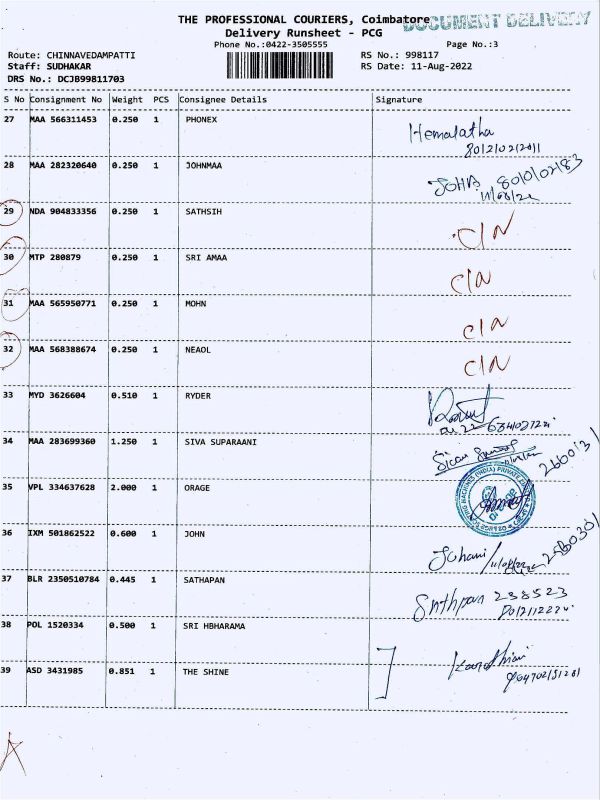 THE PROFESSIONAL COURIERS, Coimbatore
DOCUMENT DELIVERY
Delivery Runsheet - PCG
Phone No.:0422-3505555
Page No.:3
Route: CHINNAVEDAMPATTI
RS No.: 998117
Staff: SUDHAKAR
RS Date: 11-Aug-2022
DRS No.: DCJB99811703
S No Consignment No Weight PCS Consignee Details Signature
27 MAA 566311453 0.250 1 PHONEX
Hemalatha
28 MAA 282320640 0.250 1 JOHNMAA
29 NDA 904833356 0.250 1 SATHSIH C/N
30 MTP 280879 0.250 1 SRI AMAA C/N
31 MAA 565950771 0.250 1 MOHN C/N
32 MAA 568388674 0.250 1 NEAOL C/N
33 MYD 3626604 0.510 1 RYDER
34 MAA 283699360 1.250 1 SIVA SUPARAANI
35 VPL 334637628 2.000 1 ORAGE
36 IXM 501862522 0.600 1 JOHN
37 BLR 2350510784 0.445 1 SATHAPAN
38 POL 1520334 0.500 1 SRI HBHARAMA
39 ASD 3431985 0.851 1 THE SHINE